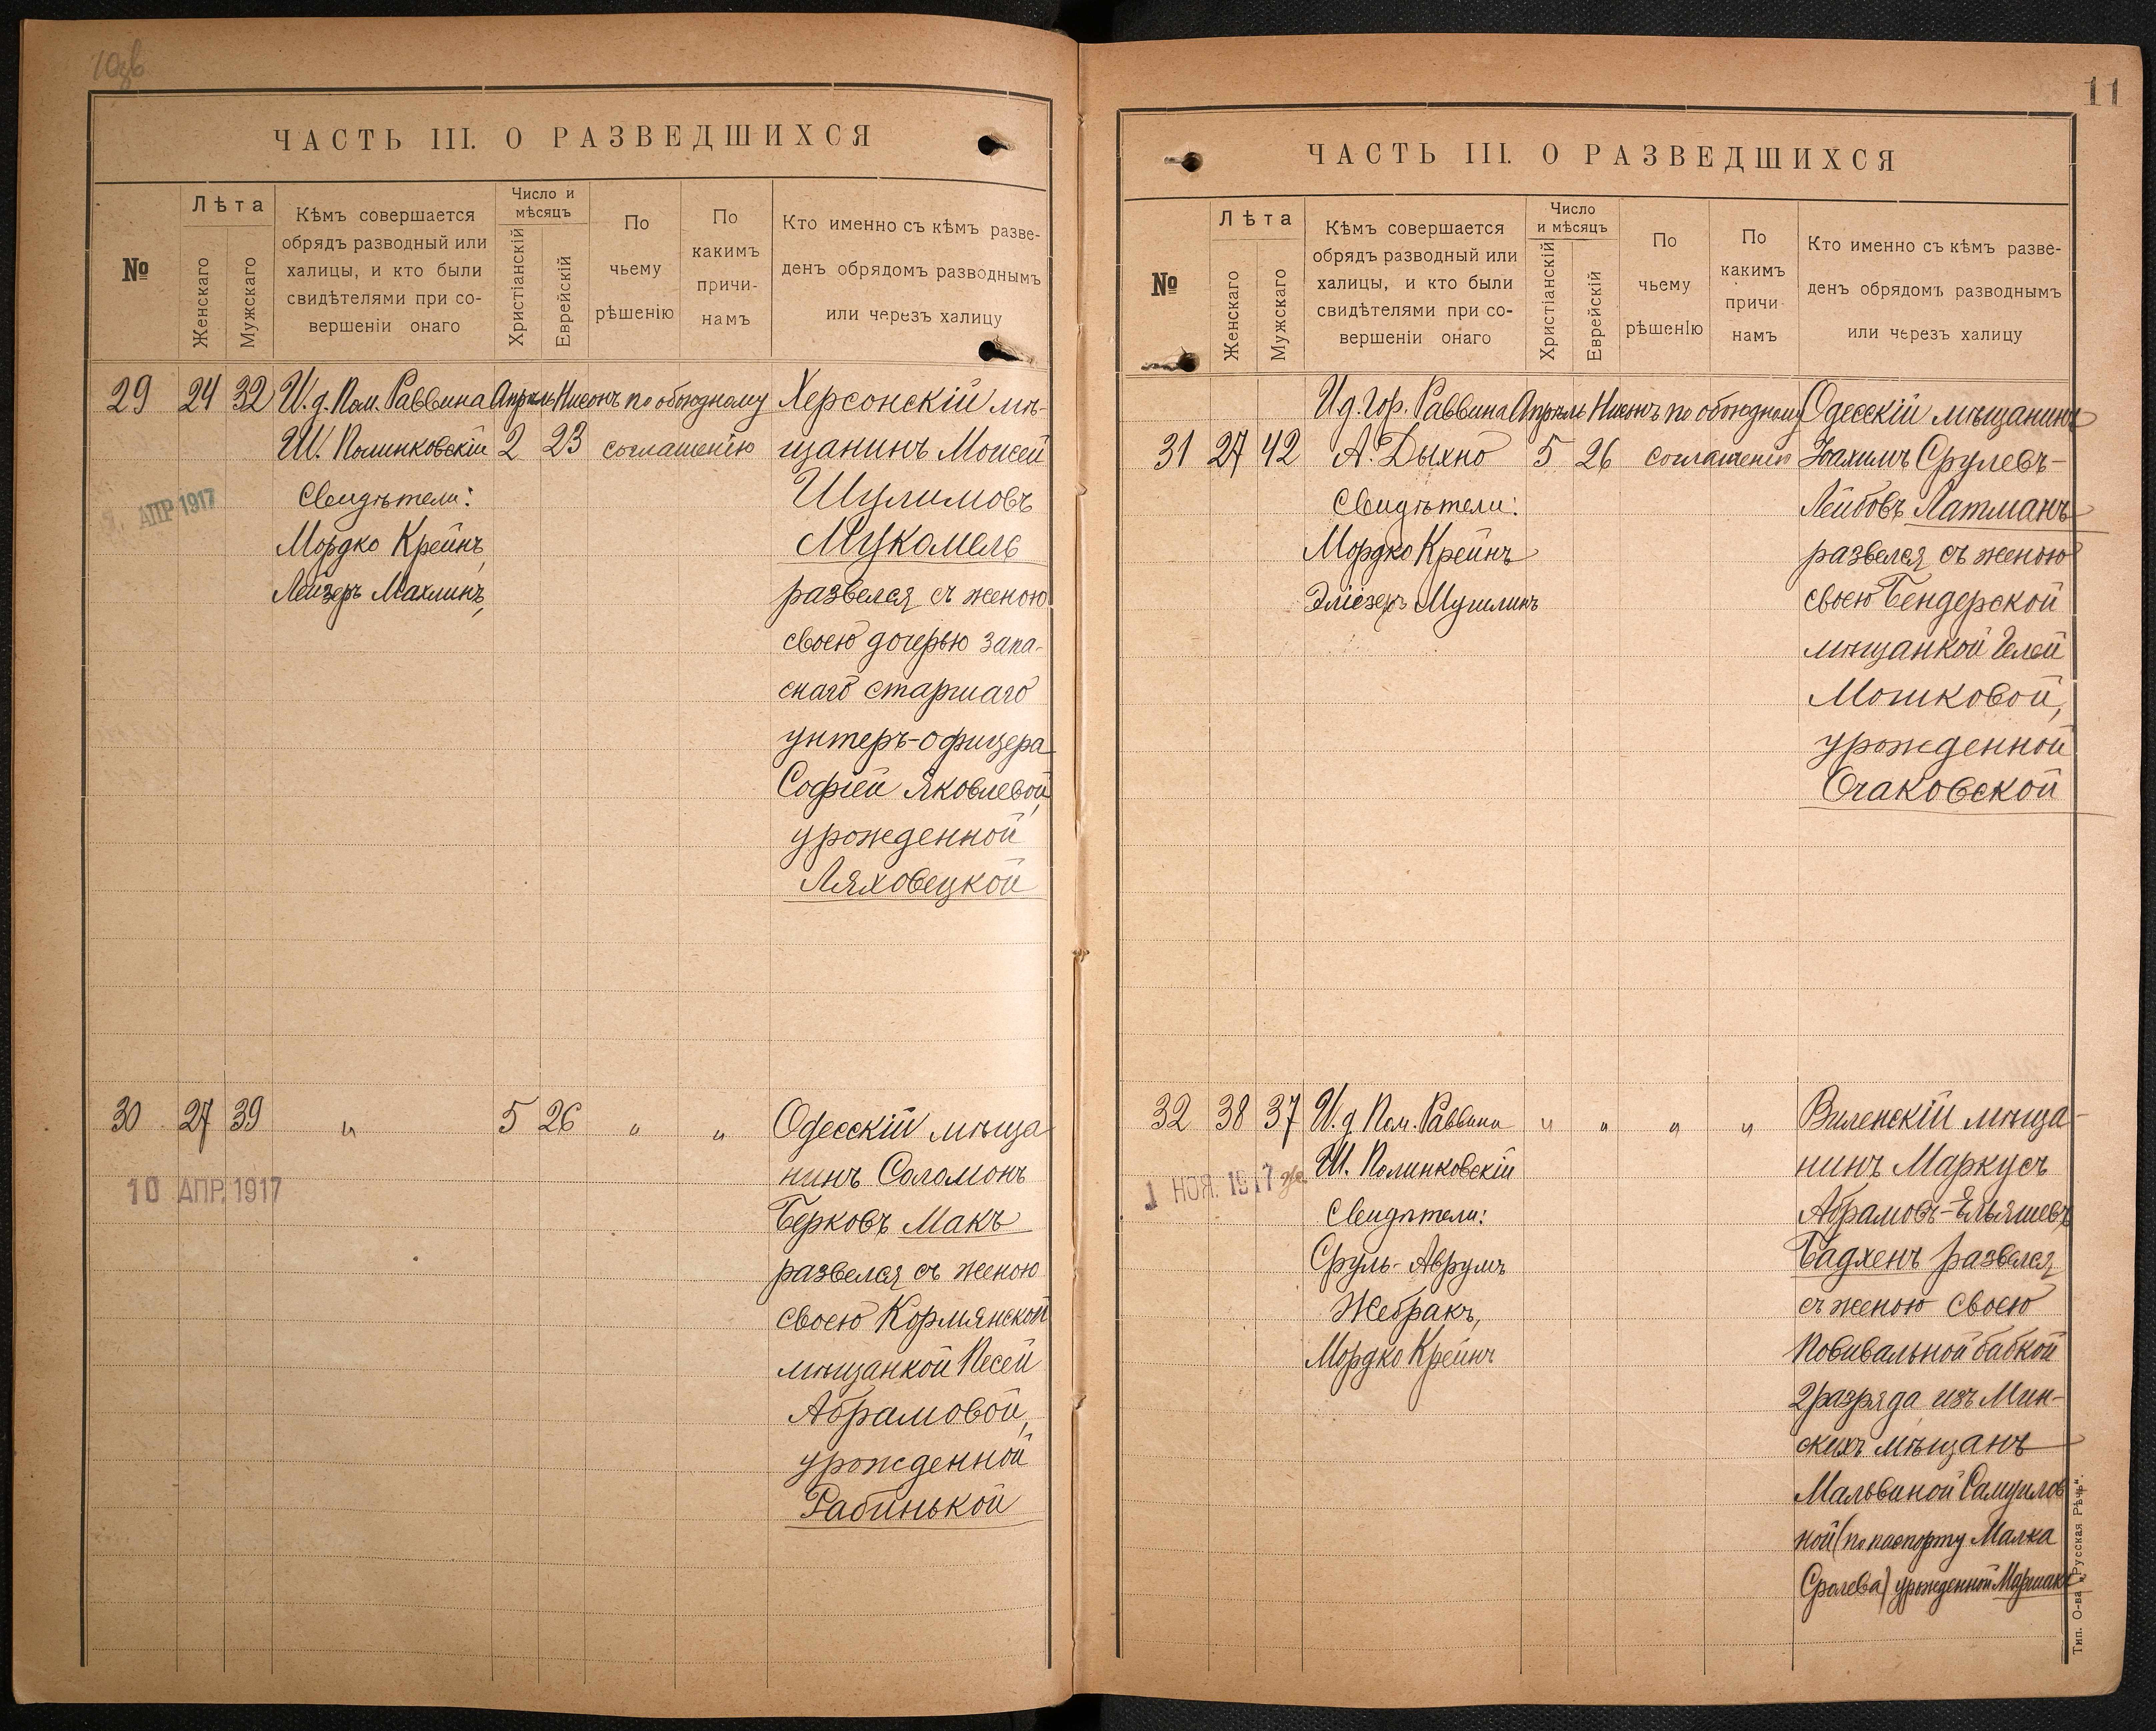 ЧАСТЬ III. О РАЗВЕДШИХСЯ
№
Лѣта
Женскаго
Мужскаго
Кѣмъ совершается
обрядъ разводный или
халицы, и кто были
свидѣтелями при со-
вершеніи онаго
Число и
мѣсяцъ
Христіанскій
Еврейскій
По
чьему
рѣшенію
По
какимъ
причи-
намъ
Кто именно съ кѣмъ разве-
денъ обрядомъ разводнымъ
или черезъ халицу
29 24 32 И.д. Пом. Раввина Апрель Нисонъ по обоюдному Херсонскій мѣ-
Ш. Полинковскій 2 23 соглашенію щанинъ Моисей
АПР 1917 Свидѣтели: Шулимовъ
Мордко Крейнъ, Мукомель
Лейзеръ Махлинъ, развелся съ женою
своею дочерью запа-
снаго старшаго
унтеръ-офицера
Софіей Яковлевой,
урожденной
Ляховецкой
30 27 39 " 5 26 " " Одесскій мѣща
10 АПР. 1917 нинъ Соломонъ
Берковъ Макъ
развелся съ женою
своею Кормянской
мѣщанкой Песей
Абрамовой,
урожденной
Рабинькой
11
ЧАСТЬ III. О РАЗВЕДШИХСЯ
№
Лѣта
Женскаго
Мужскаго
Кѣмъ совершается
обрядъ разводный или
халицы, и кто были
свидѣтелями при со-
вершеніи онаго
Число
и мѣсяцъ
Христіанскій
Еврейскій
По
чьему
рѣшенію
По
какимъ
причи
намъ
Кто именно съ кѣмъ разве-
денъ обрядомъ разводнымъ
или черезъ халицу
И д. Гор. Раввина Апрель Нисонъ по обоюдному Одесскій мѣщанинъ
31 27 42 А. Дыхно 5 26 соглашенію Іоахимъ Срулевъ-
Свидѣтели: Лейбовъ Латманъ
Мордко Крейнъ развелся съ женою
Эліезеръ Мушлинъ своею Бендерской
мѣщанкой Гелей
Мошковой,
урожденной
Очаковской
32 38 37 И.д Пом. Раввина " " " " Виленскій мѣща-
1 НОЯ. 1917 Ш. Полинковскій нинъ Маркусъ
Свидѣтели: Абрамовъ-Эльяшевъ
Сруль-Аврумъ Бадхенъ развелся
Жебракъ, съ женою своею
Мордко Крейнъ Повивальной бабкой
2 разряда изъ Мин-
скихъ мѣщанъ
Мальвиной Самуилов
ной (по паспорту Малка
Сролева) урожденной Маршакъ
Тип. О-ва „Русская Рѣчь“.